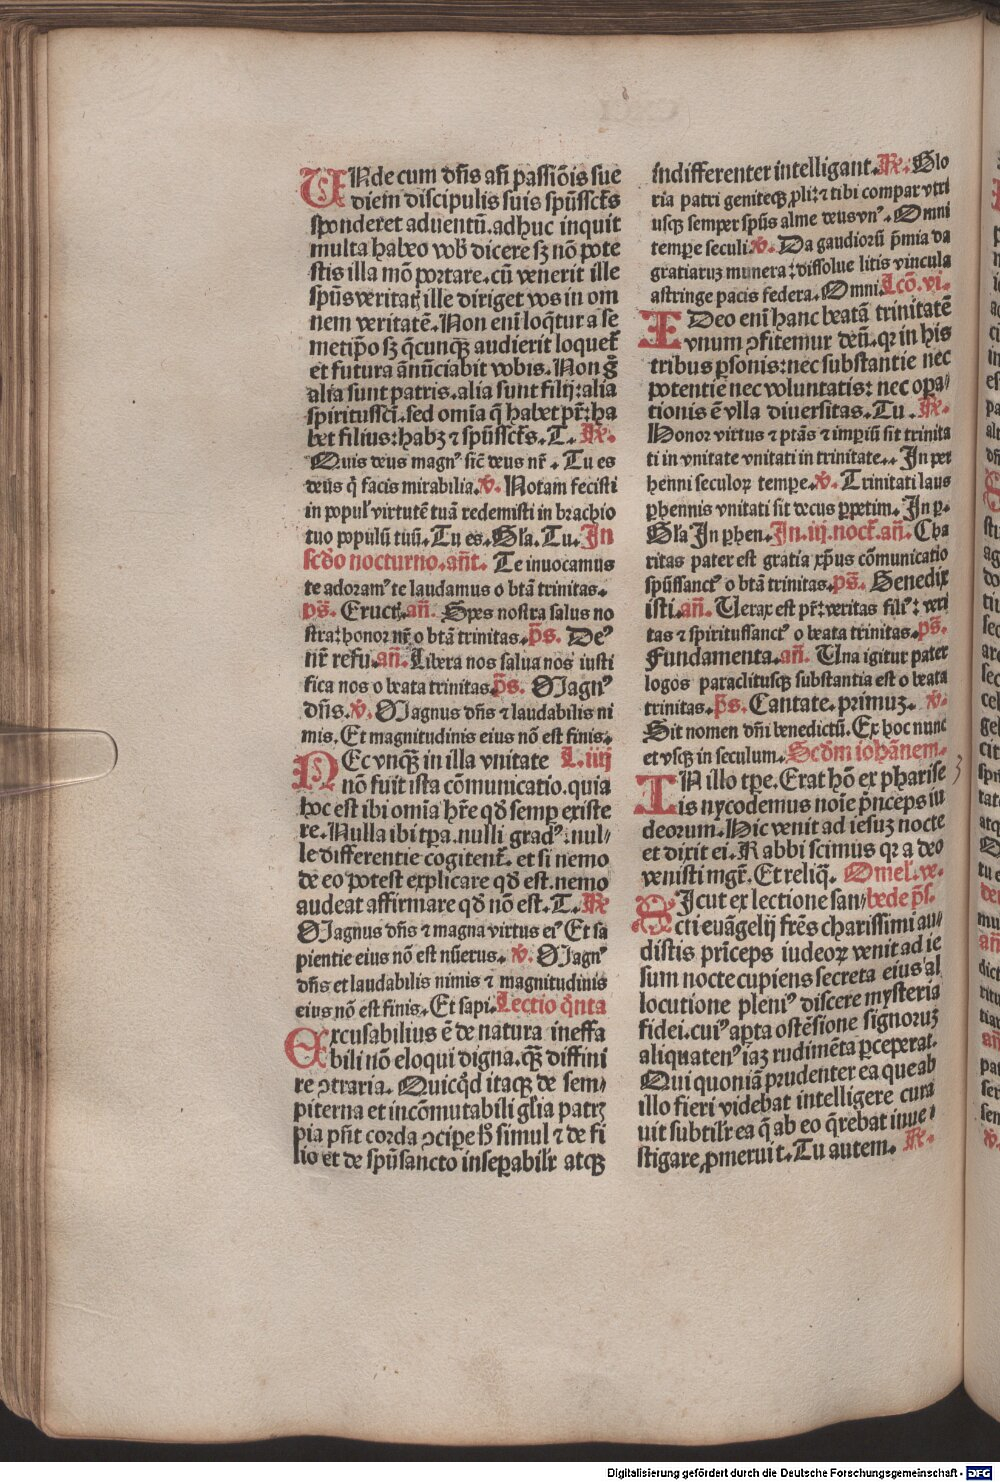 VNde cum dñs añ passiõis sue
diem discipulis suis spũssctũs
sponderet aduentũ. adhuc inquit
multa habeo vob̃ dicere sꝫ nõ pote
stis illa mõ portare. cũ venerit ille
spũs veritaꝭ ille diriget vos in om
nem veritatẽ. Non eni loq̃tur a se
metip̃o sꝫ q̃cunqꝫ audierit loquet̃
et futura ãnũciabit vobis. Non g̃
alia sunt patris. alia sunt filij: alia
spiritussci. sed omia q̃ habet pr̃: ha
bet filius: habꝫ ⁊ spũssct̃s. T. R̃.
Quis deus magnꝰ sic̃ deus nr̃. Tu es
deus q̃ facis mirabilia. v̄. Notam fecisti
in populꝰ virtutẽ tuã redemisti in brachio
tuo populũ tuũ. Tu es. Gl̃a. Tu. In
scd̃o nocturno. añt. Te inuocamus
te adoramꝰ te laudamus o bt̃ã trinitas.
ps̃. Eructꝭ. añ. Spes nostra salus no
stra: honor nr̃ o bt̃ã trinitas. ps̃. Deꝰ
nr̃ refu. añ. Libera nos salua nos iusti
fica nos o beata trinitas. ps̃. Magnꝰ
dñs. v̄. Magnus dñs ⁊ laudabilis ni
mis. Et magnitudinis eius nõ est finis.
NEc vnqꝫ in illa vnitate L. iiij
nõ fuit ista cõmunicatio. quia
hoc est ibi omia hr̃e qd̃ semp̱ existe
re. Nulla ibi tp̃a. nulli gradꝰ: nul/
le differentie cogitent̃. et si nemo
de eo potest explicare qd̃ est. nemo
audeat affirmare qd̃ nõ est. T. R̃
Magnus dñs ⁊ magna virtus eiꝰ Et sa
pientie eius nõ est nũerus. v̄. Magnꝰ
dñs et laudabilis nimis ⁊ magnitudinis
eius nõ est finis. Et sapi. Lectio q̃nta
Excusabilius ẽ de natura ineffa
bili nõ eloqui digna. qꝫ diffini
re ꝯtraria. Quicq̃d itaqꝫ de sem/
piterna et incõmutabili gl̃ia patrꝭ
pia pñt corda ꝯcip̱e h̃ simul ⁊ de fi
lio et de spũsancto insep̱abilr̃ atqꝫ
indifferenter intelligant. R̃. Glo
ria patri genitoqꝫ ꝓli: ⁊ tibi compar vtri
usqꝫ semper spũs alme deus vnꝰ. Omni
temp̱e seculi v̄. Da gaudiorũ p̃mia da
gratiaruꝫ munera: dissolue litis vincula
astringe pacis federa. Omni. Lcõ. vi.
IDeo eni hanc beatã trinitatẽ
vnum ꝯfitemur deũ. qꝛ in his
tribus p̱sonis: nec substantie nec
potentie nec voluntatis: nec op̱a/
tionis ẽ vlla diuersitas. Tu. R̃.
Honor virtus ⁊ ptãs ⁊ imp̱iũ sit trinita
ti in vnitate vnitati in trinitate.. In per
henni seculoꝝ temp̱e. v̄. Trinitati laus
p̱hennis vnitati sit decus p̱petim. In p.
Gl̃a In p̱hen. In. iij. noct̃. añ. Cha
ritas pater est gratia xp̃us cõmunicatio
spũssanctꝰ o bt̃ã trinitas. ps̃. Benedix
isti. añ. Verax est pr̃: veritas filiꝰ: veri
tas ⁊ spiritussanctꝰ o beata trinitas. ps̃.
Fundamenta. añ. Vna igitur pater
logos paraclitusqꝫ substantia est o beata
trinitas. ps̃. Cantate. primuꝫ. v̄.
Sit nomen dñi benedictũ. Ex hoc nunc
et vsqꝫ in seculum. Scd̃m iohãnem.
IN illo tp̱e. Erat hõ ex pharise
is nycodemus noĩe p̃nceps iu
deorum. Hic venit ad iesuꝫ nocte
et dixit ei. Rabbi scimus qꝛ a deo
venisti mgr̃. Et reliq̃. Omel̃. ve.
SIcut ex lectione san/ bede p̃s.
cti euãgelij fr̃es charissimi au/
distis pr̃iceps iudeoꝝ venit ad ie
sum nocte cupiens secreta eius al
locutione pleniꝰ discere mysteria
fidei. cuiꝰ apta ostẽsione signoruꝫ
aliquatenꝰ iaꝫ rudimẽta p̱ceperat.
Qui quoniã prudenter ea que ab
illo fieri videbat intelligere cura
uit subtilr̃ ea q̃ ab eo q̃rebat inue/
stigare ꝓmeruit. Tu autem. R̃.
Digitalisierung gefördert durch die Deutsche Forschungsgemeinschaft - DFG